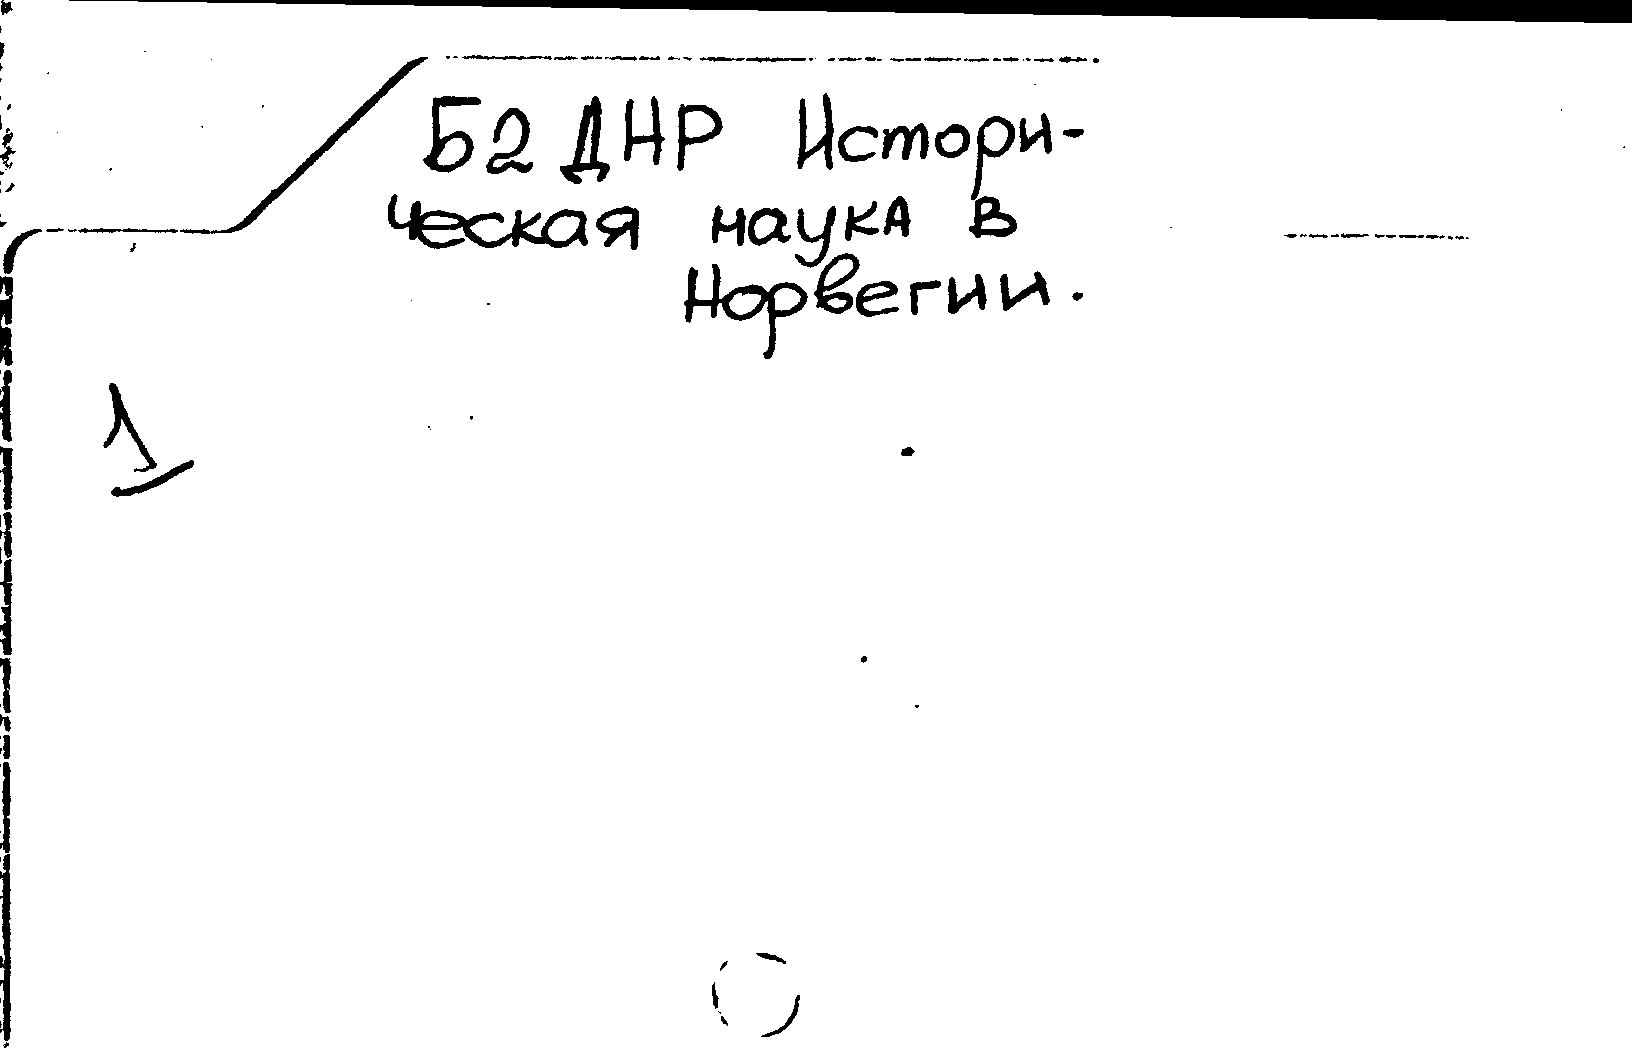 Б2 ДНР Истори-
ческая наука в
Норвегии.
1